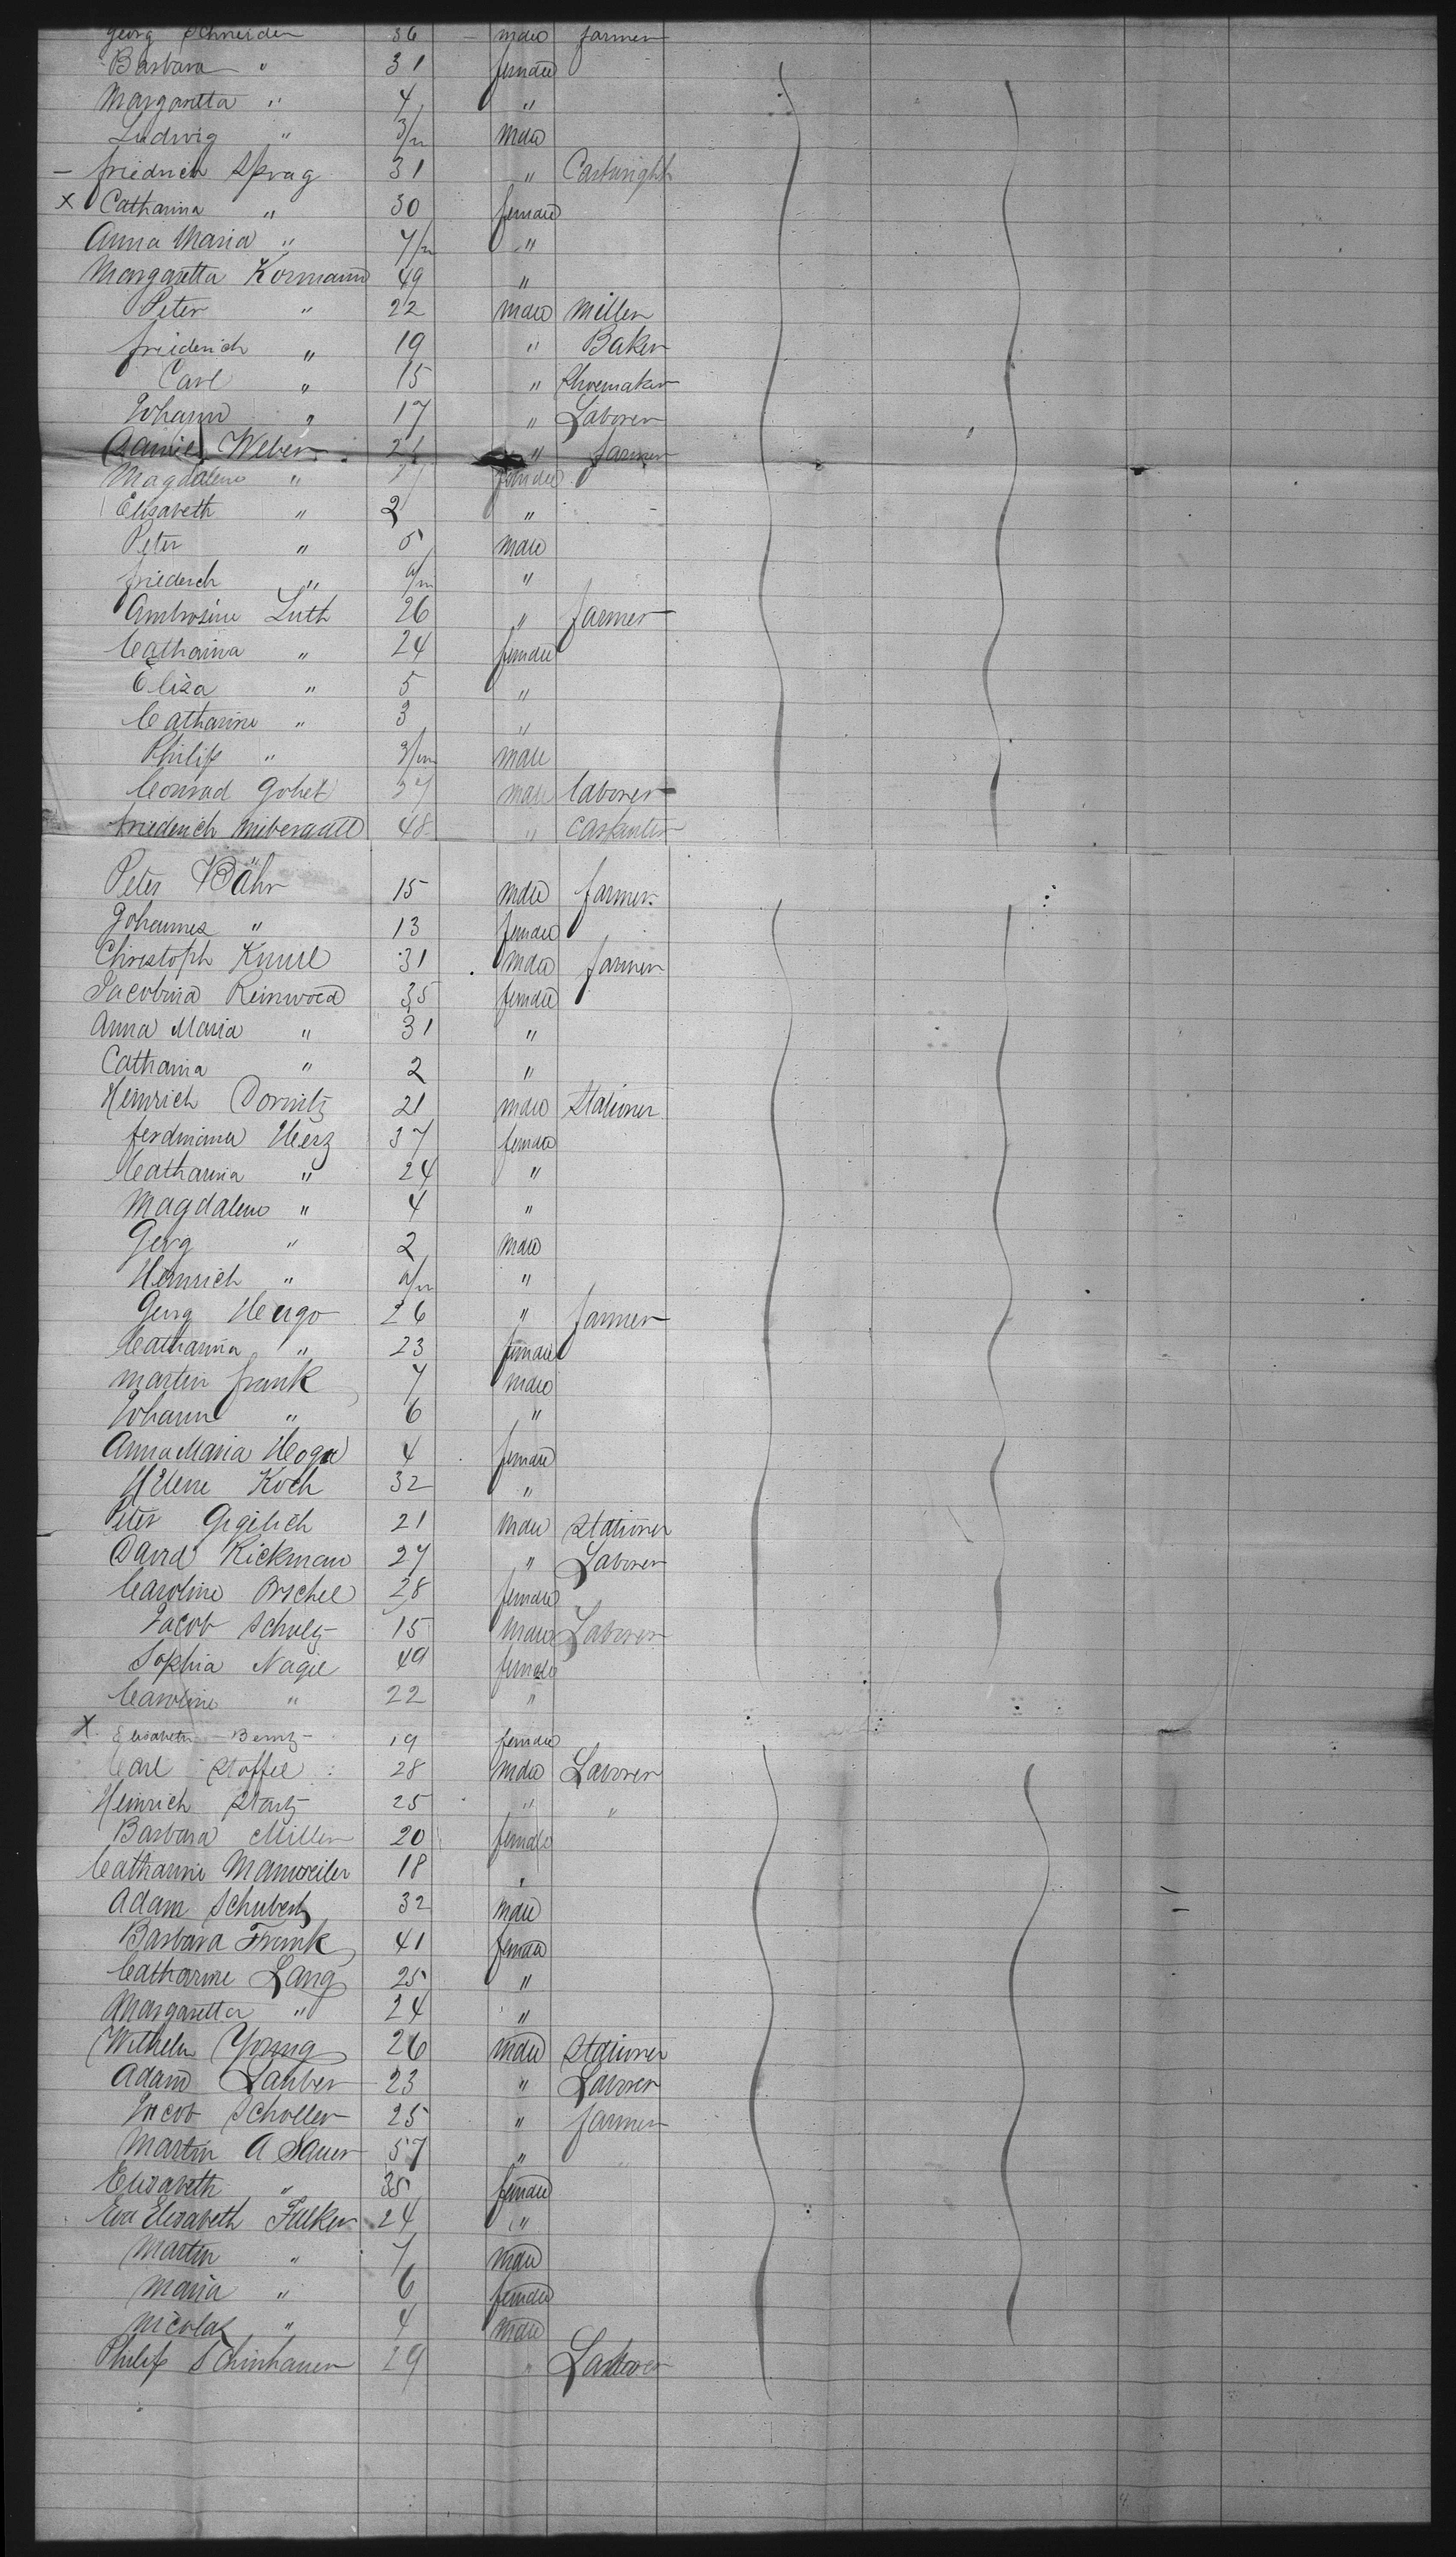 Georg Schneider 36 male farmer
Barbara " 31 female
Margaretta " 4 "
Ludwig " 3/m male
– friedrich Sprag 31 " Cartwright
x Catharina " 30 female
Anna Maria " 7/m "
Margaretta Kormann 49 "
Peter " 22 male Miller
friederich " 19 " Baker
Carl " 15 " Shoemaker
Johann " 17 " Laborer
Daniel Weber " farmer
Magdalena " female
Elisabeth " 2 "
Peter " 5 male
friederch " "
Ambrosine Luth 26 " farmer
Catharina " 24 female
Eliza " 5 "
Catharine " 3 "
Philip " 9/m male
Conrad Gohet 37 male laborer
friederich Mibergall 48 " Carpenter
Peter Bähr 15 male farmer
Johannes " 13 female
Christoph 31 male farmer
Jacobina Reinwood 35 female
Anna Maria " 31 "
Catharia " 2 "
Heinrich Dornitz 21 male Stationer
ferdinana Herz 37 female
Catharina " 24 "
Magdalena " 4 "
Georg " 2 male
Heinrich " "
Georg Hergo 26 " farmer
Catharina " 23 female
Martin frank 7 male
Johann " 6 "
Anna Maria Hoga 4 female
Helene Koch 32 "
Peter Gigelich 21 male Stationer
David Rickman 27 " Laborer
Caroline Orschel 28 female
Jacob Schulz 15 male Laborer
Sophia Nagel 49 female
Caroline " 22 "
X Elisabeth Bernz 19 female
Carl Stoffel 28 male Laborer
Heinrich Startz 25 " "
Barbara Miller 20 female
Catharine Manweiler 18 "
Adam Schubert 32 male
Barbara Frank 41 female
Catharine Lang 25 "
Margaretta " 24 "
Wilhelm Young 26 male Stationer
Adam Lauber 23 " Laborer
Jacob Scholler 25 " farmer
Martin A Sauer 57 "
Elisabeth " 35 female
Eva Elisabeth Falker 24 "
Martin " 7 male
Maria " 6 female
Nicolas " 4 male
Philip Schinhauer 29 " Laborer